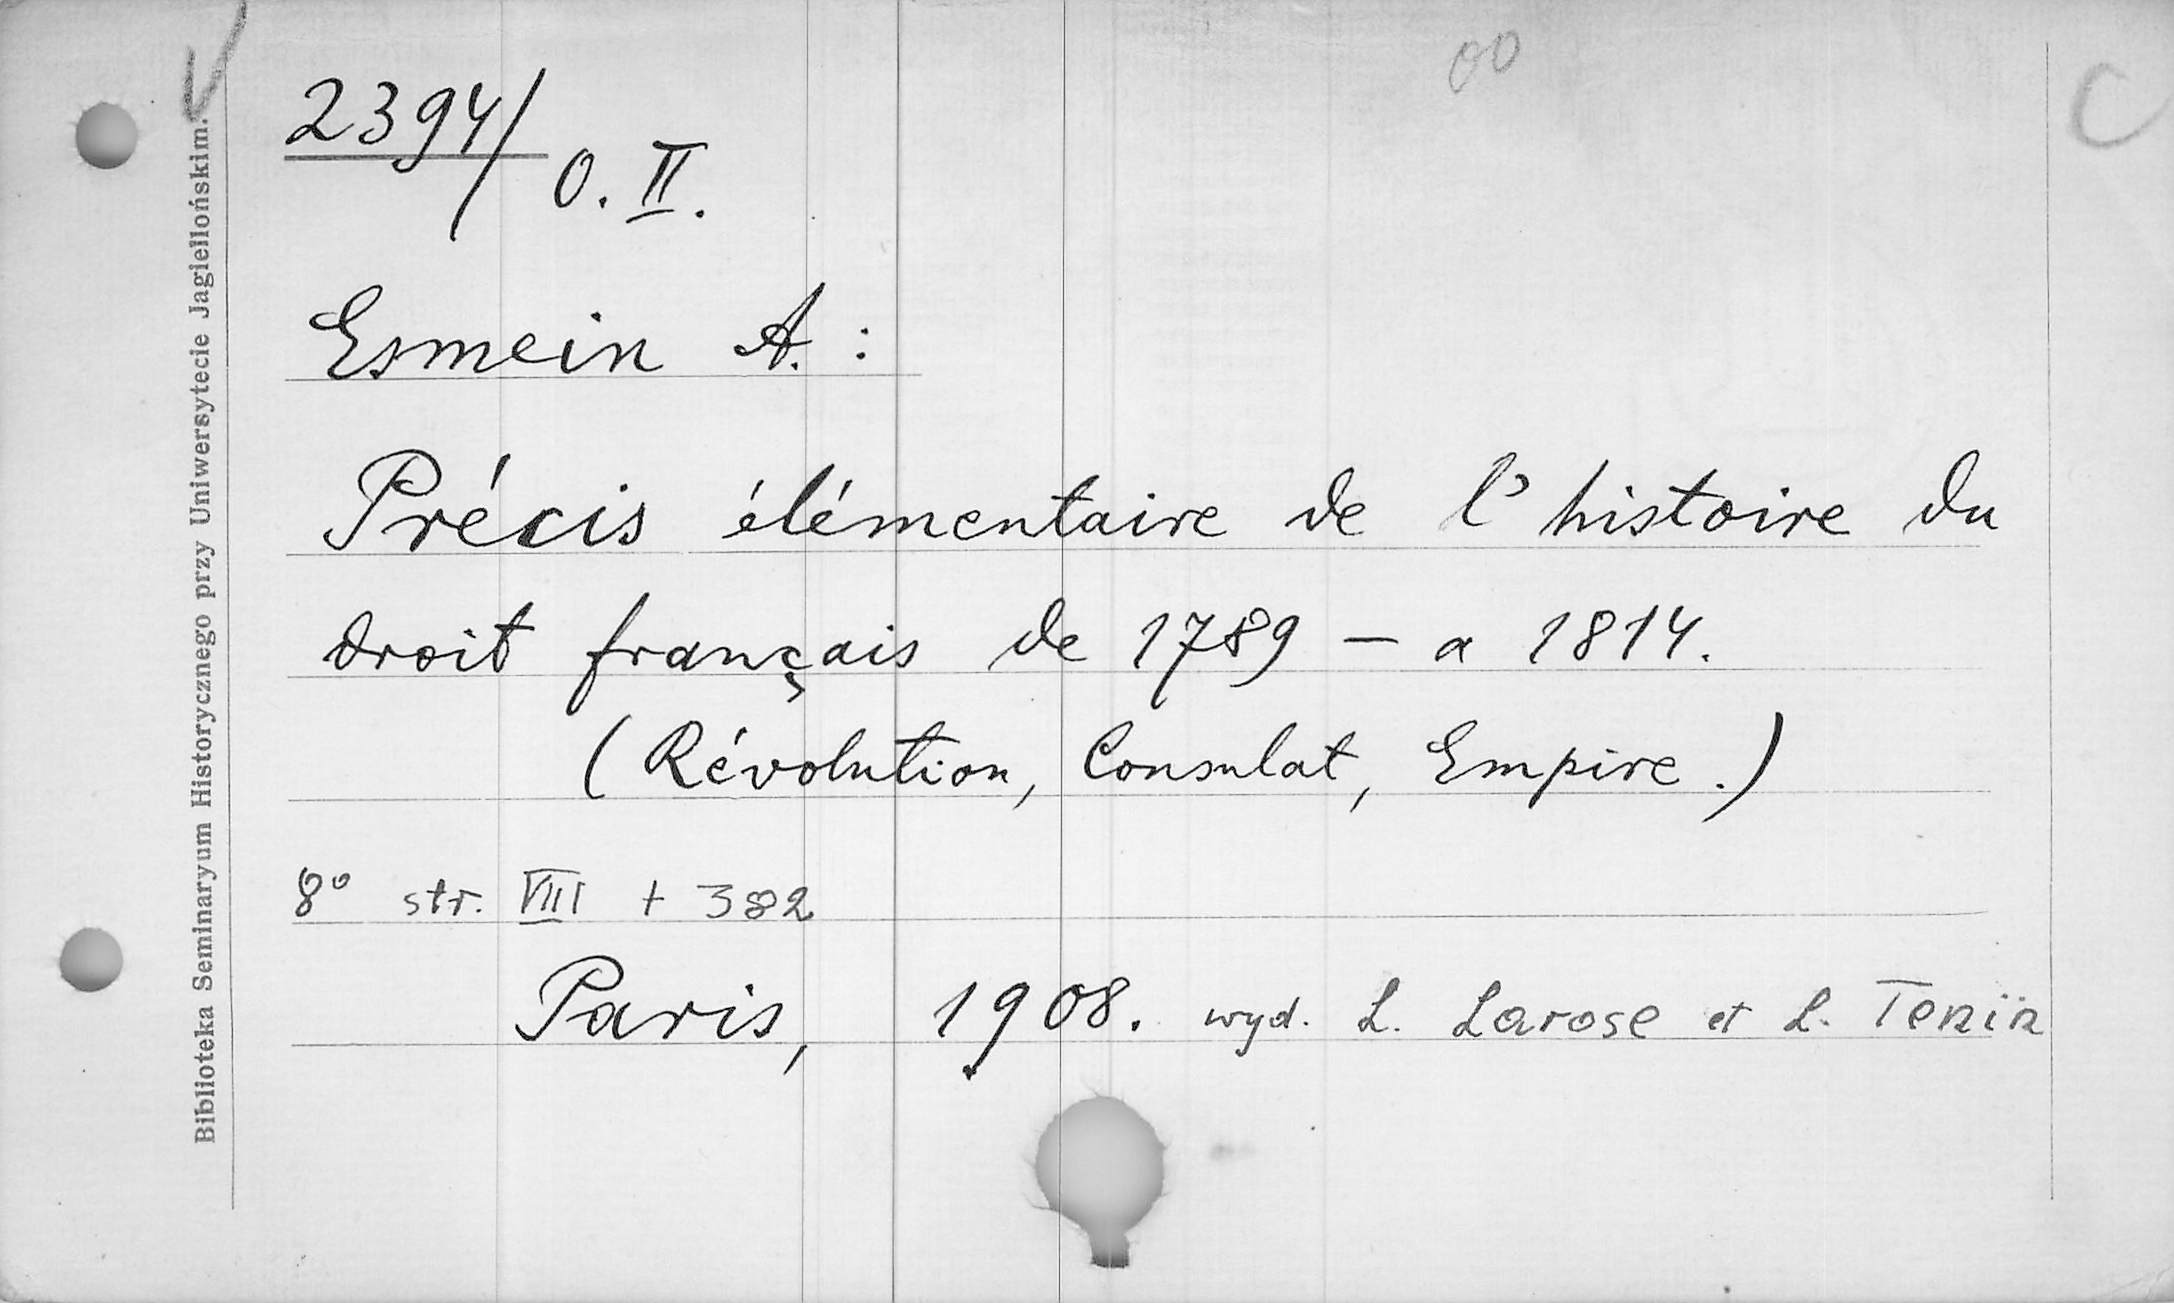 2394/
O. II.
00
C
Biblioteka Seminaryum Historycznego przy Uniwersytecie Jagiellońskim.
Esmein A. :
Précis élémentaire de l'histoire du
droit français de 1789 — a 1814.
(Révolution, Consulat, Empire.)
8° str. VIII + 382
Paris, 1908. wyd. L. Larose et L. Tenïn